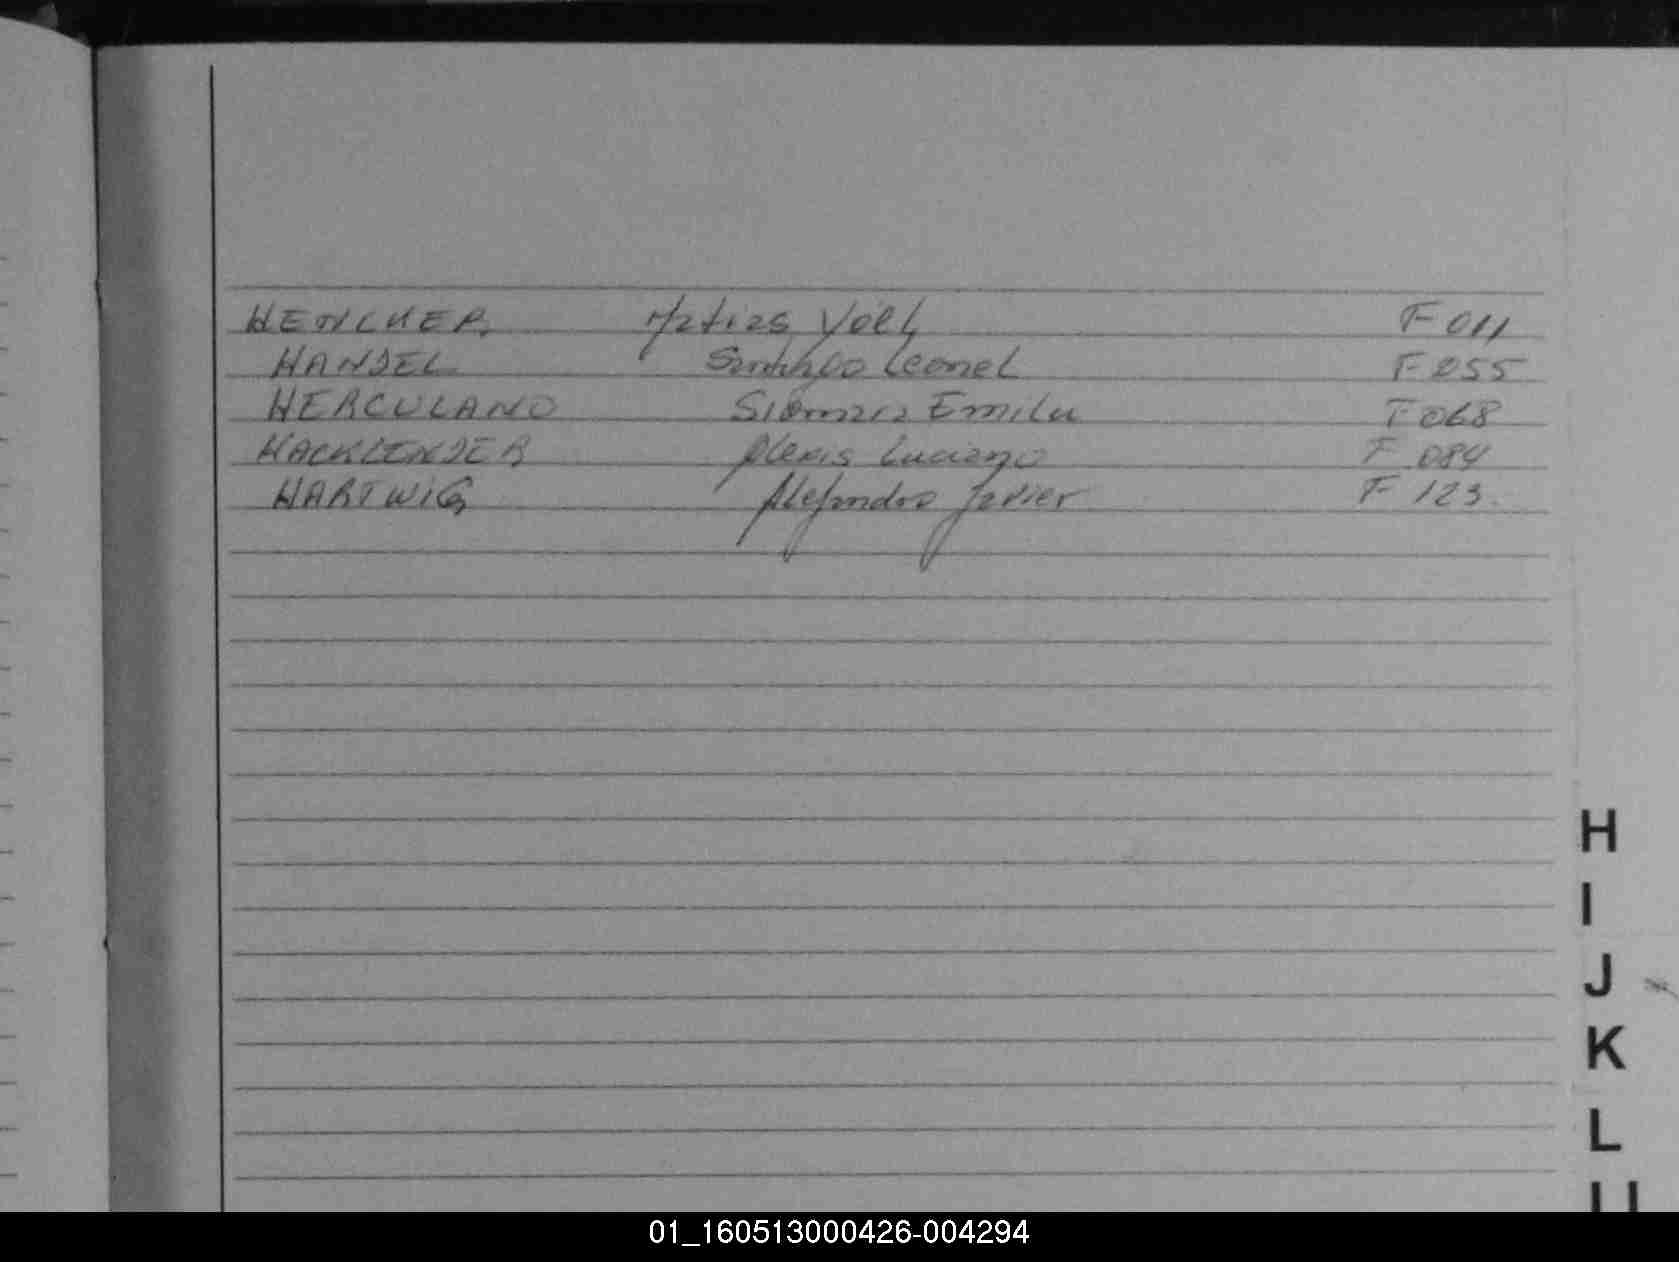 HENCKER Matias Yoel F 011
HANSEL Santiago Leonel F 055
HERCULANO Siomara Emilu F 068
HACKLENDER Alexis Luciano F 084
HARTWIG Alejandro Javier F 123
H
I
J
K
L
01_160513000426-004294